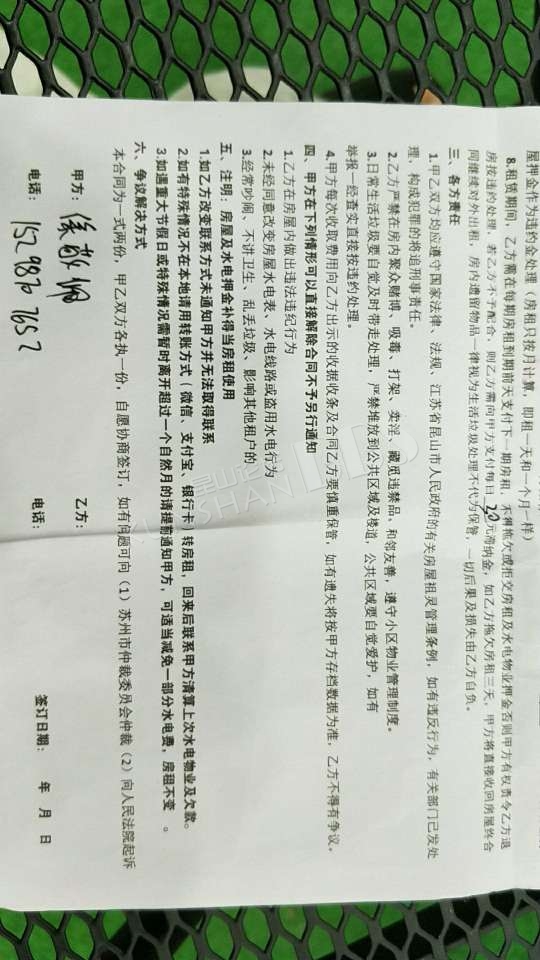 屋押金作为违约金处理（房租只按月计算，即租一天和一个月一样）
8.租赁期间，乙方需在每期房租到期前天支付下一期房租，不得拖欠或拒交房租及水电物业押金否则甲方有权责令乙方退
房按违约处理，若乙方不予配合，则乙方需向甲方支付每日20元滞纳金，如乙方拖欠房租三天，甲方将直接收回房屋终合
同继续对外出租，房内遗留物品一律视为生活垃圾处理不代为保管，一切后果及损失由乙方自负。
三、各方责任
1.甲乙双方均应遵守国家法律、法规，江苏省昆山市人民政府的有关房屋祖灵管理条例，如有违反行为，有关部门己发处
理，构成犯罪的将追刑事责任。
2.乙方严禁在房内聚众赌博、吸毒、打架、卖淫、藏觅违禁品、和邻友善，遵守小区物业管理制度。
3.日常生活垃圾要自觉及时带走处理，严禁堆放到公共区域及楼道，公共区域要自觉爱护，如有
举报一经查实直接按违约处理。
4.甲方每次收取费用向乙方出示的收据收条及合同乙方要慎重保管，如有遗失将按甲方存档数据为准，乙方不得有争议。
四、甲方在下列情形可以直接解除合同不予另行通知
1.乙方在房屋内做出违法违纪行为
2.未经同意改变房屋水电表、水电线路或盗用水电行为
3.经常吵闹、不讲卫生、乱丢垃圾、影响其他租户的
五、注明：房屋及水电押金补得当房租使用
1.如乙方改变联系方式未通知甲方并无法取得联系
2.如有特殊情况不在本地请用转账方式（微信、支付宝、银行卡）转房租，回来后联系甲方清算上次水电物业及欠款。
3.如遇重大节假日或特殊情况需暂时离开超过一个自然月的请提前通知甲方，可适当减免一部分水电费，房租不变 。
六、争议解决方式
本合同为一式两份，甲乙双方各执一份，自愿协商签订，如有问题可向（1）苏州市仲裁委员会仲裁（2）向人民法院起诉
甲方： 乙方： 签订日期： 年 月 日
电话：152 9870 7652 电话：